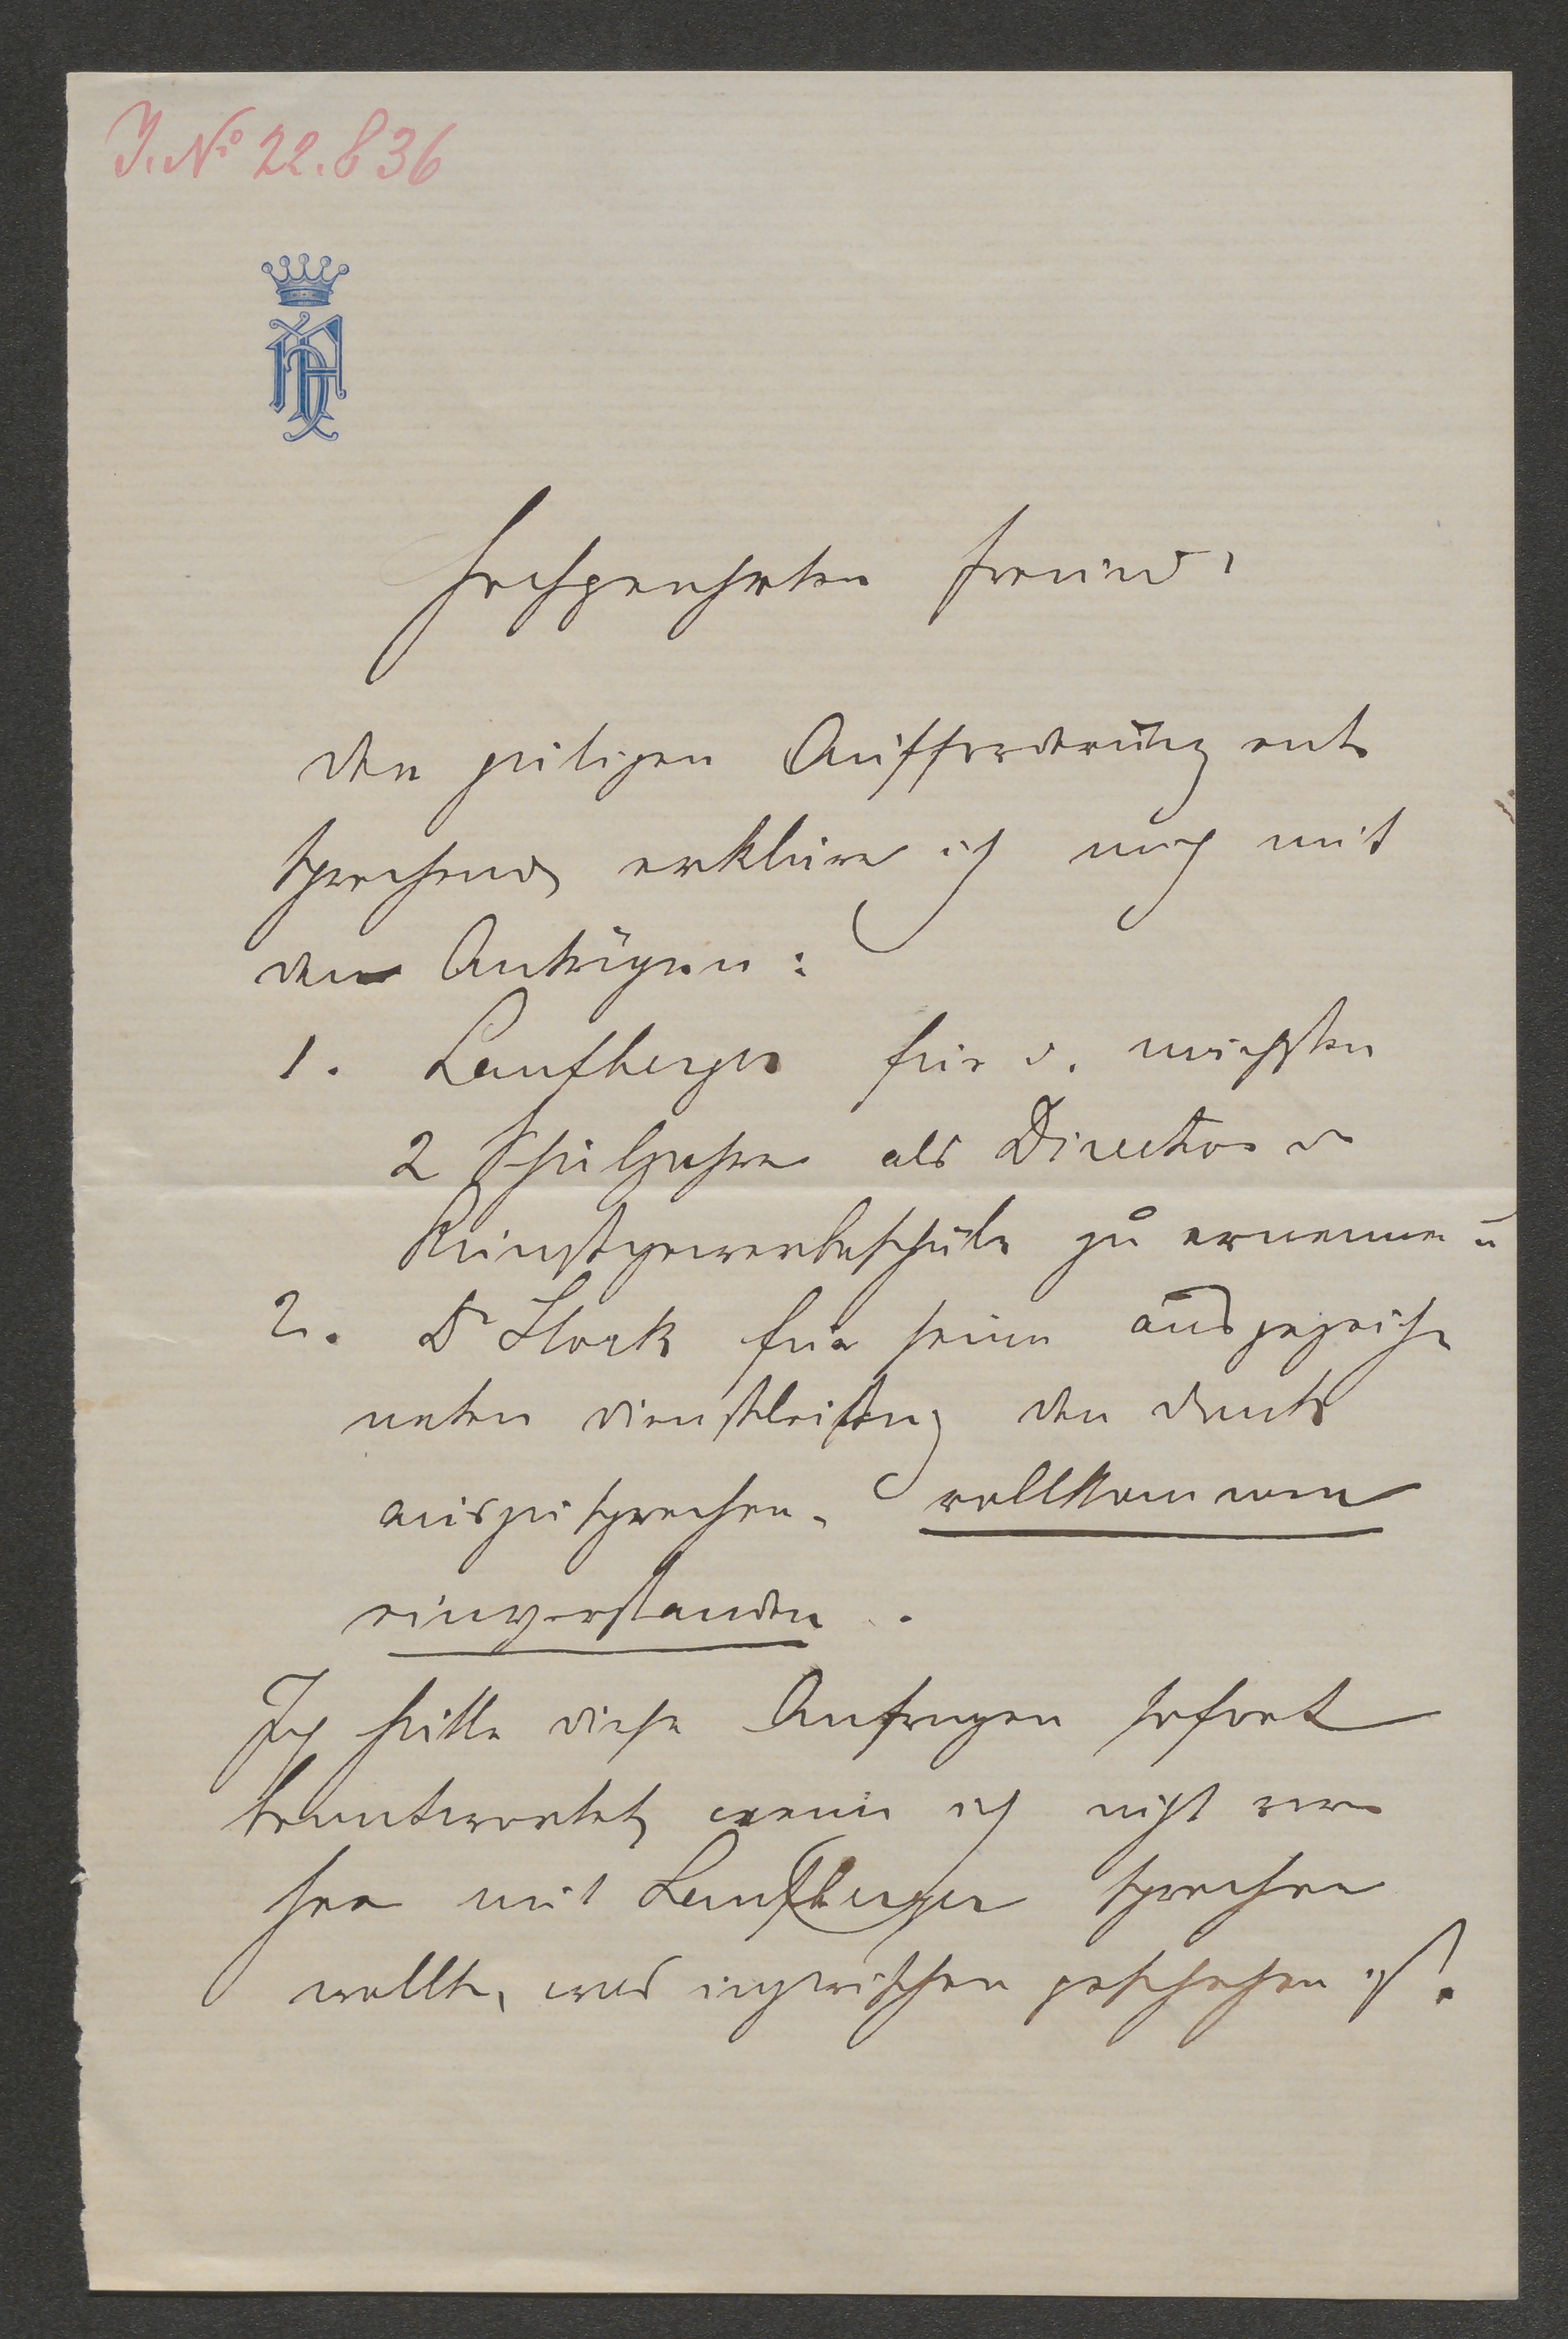 J. No 22.836
Hochgeehrter Freund,
der gütigen Aufforderung ent
sprechend erkläre ich mich mit
den Anträgen:
1. Laufberger für d. nächsten
2 Schuljahre als Director d
Kunstgewerbeschule zu ernennen u
2. Dr Storck für seine ausgezeich
neten Dienstleistung den Dank
auszusprechen. vollkommen
einverstanden.
Ich hätte diese Anfragen sofort
beantwortet, wenn ich nicht vor
her mit Laufberger sprechen
wollte, was inzwischen geschehen ist.